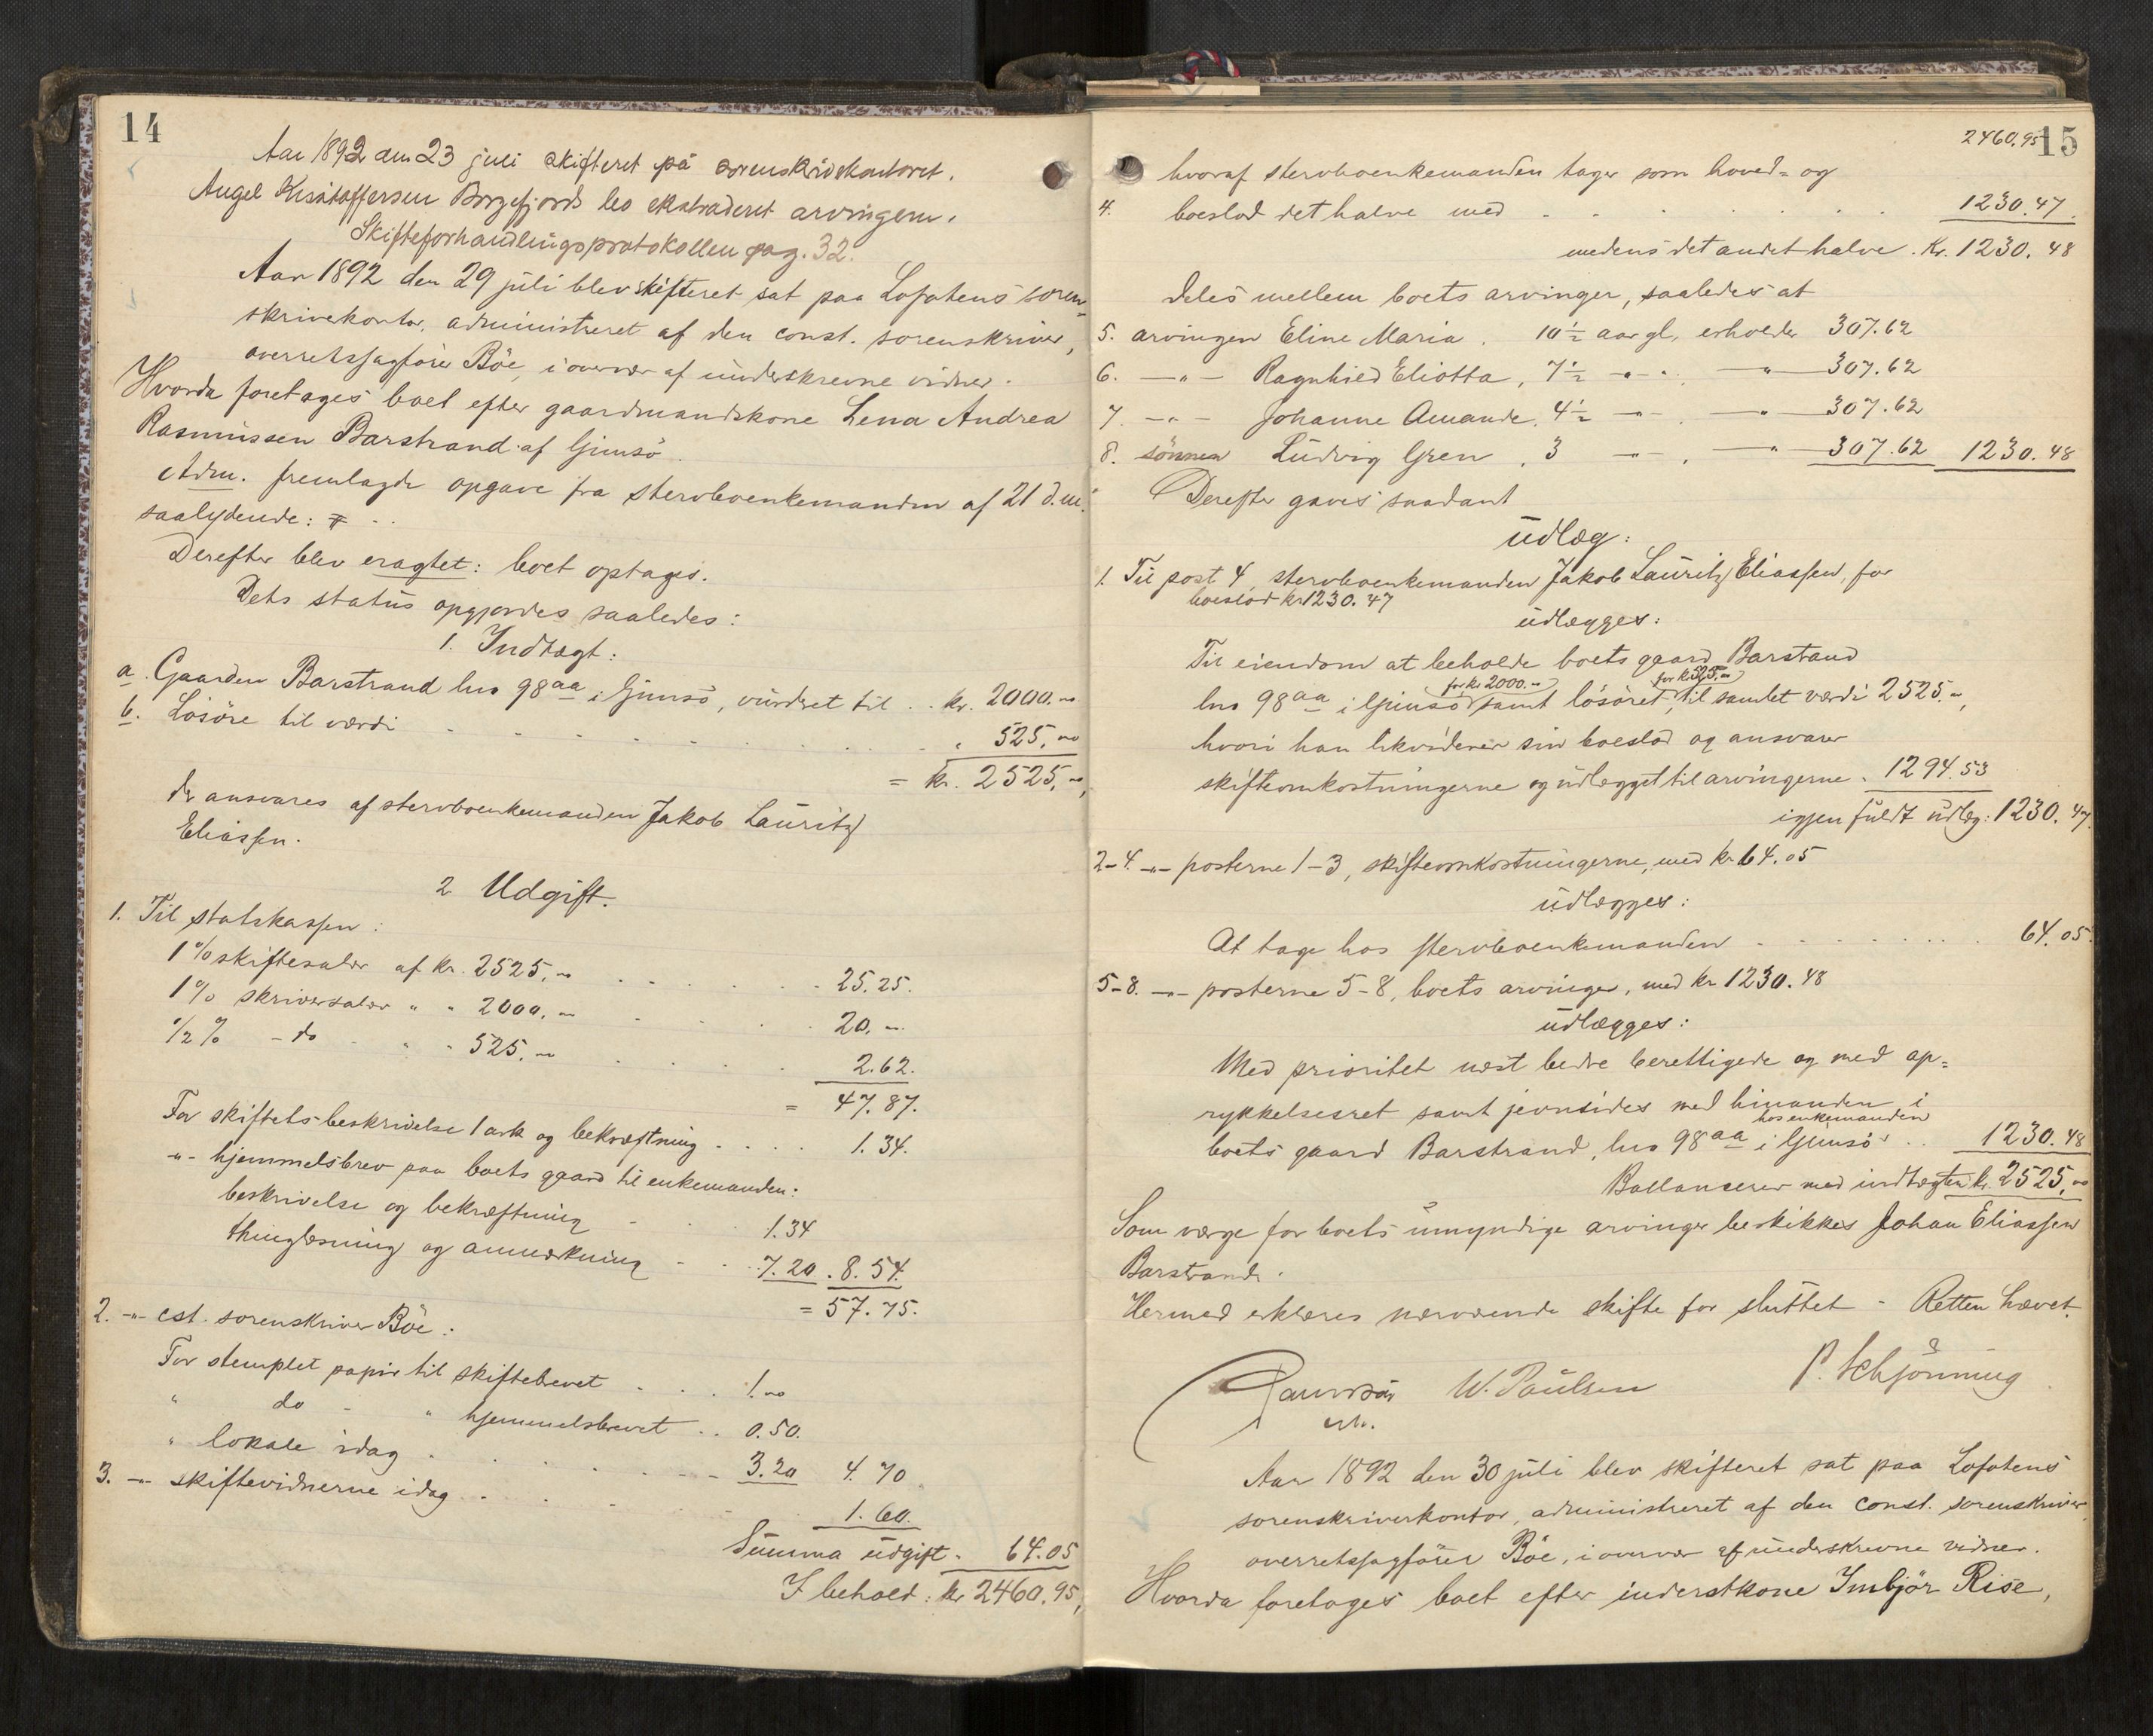 14
Aar 1892 den 23 juli skifteret på sorenskriverkontoret.
Angel Kristoffersen Borgefjords bo ekstraderet arvingerne.
Skifteforhandlingsprotokollen pag. 32.
Aar 1892 den 29 juli blev skifteret sat paa Lofotens soren-
skriverkontor, administreret af den const. sorenskriver,
overretssagfører Böe, i overvær af underskrevne vidner.
Hvorda foretoges boet efter gaardmandskone Lena Andrea
Rasmussen Barstrand af Gimsö.
Adm. fremlagde opgave fra stervboenkemanden af 21 d.m.
saalydende: ⌗ . .
Derefter blev eragtet: boet optages.
Dets status opgjordes saaledes:
1. Indtægt:
a. Gaarden Barstrand, lno 98aa i Gimsö, vurderet til . . kr. 2000.„
b. Lösöre til værdi . . . „ 525.„
= kr. 2525.„,
der ansvares af stervboenkemanden Jakob Lauritz
Eliassen.
2 Udgift.
1. Til statskassen:
1% skiftesalær af kr. 2525.„ . . . 25.25.
1% skriversalær „ „ 2000.„ . . . 20.„
1/2% - do - „ „ 525.„ . . . 2.62.
= 47.87.
For skiftets beskrivelse 1 ark og bekræftning . . . . 1.34.
-„- hjemmelsbrev paa boets gaard til enkemanden:
beskrivelse og bekræftning . . . 1.34
thinglæsning og anmærkning . . . 7.20 . 8.54.
= 57.75.
2. -„- cst. sorenskriver Böe:
For stemplet papir til skiftebrevet . . . 1.„
„ do - „ hjemmelsbrevet . . 0.50.
„ lokale idag . . . 3.20 4.70
3. -„- skiftevidnerne idag . . . 1.60.
Summa udgift . 64.05
I behold: kr 2460.95,
15
2460.95
hvoraf stervboenkemanden tager som hoved- og
4. boeslod det halve med . . . 1230.47.
medens det andet halve . Kr. 1230.48
deles mellem boets arvinger, saaledes at
5. arvingen Eline Maria, 10½ aar gl, erholder 307.62
6. -„- Ragnhild Eliotta, 7½ -„-, -„- 307.62
7. -„- Johanne Amande, 4½ -„-, -„- 307.62
8. sönnen Ludvig Gren, 3 -„-, -„- 307.62 1230.48
Derefter gaves saadant
udlæg:
1. Til post 4, stervboenkemanden Jakob Lauritz Eliassen, for
boeslod kr 1230.47
udlægges:
Til eiendom at beholde boets gaard Barstrand
for kr 2000.„ for kr 525.„
lno 98aa i Gimsö samt lösöret, til samlet værdi 2525.„,
hvori han likviderer sin boeslod og ansvarer
skifteomkostningerne og udlægget til arvingerne . 1294.53
igjen fuldt udlæg: 1230.47.
2-4. -„- posterne 1-3, skifteomkostningerne, med kr 64.05
udlægges:
At tage hos stervboenkemanden . . . 64.05.
5-8. -„- posterne 5-8, boets arvinger, med kr 1230.48
udlægges:
Med prioritet næst bedre berettigede og med op-
rykkelsesret samt jevnsides med hinanden i
hos enkemanden
boets gaard Barstrand, lno 98aa i Gimsö . . 1230.48
Ballancerer med indtægten kr. 2525.„
Som værge for boets umyndige arvinger beskikkes Johan Eliassen
Barstrand.
Hermed erklæres nærværende skifte for sluttet - Retten hævet.
W. Paulsen P. Schjönning
cst.
Aar 1892 den 30 juli blev skifteret sat paa Lofotens
sorenskriverkontor, administreret af den const. sorenskriver,
overretssagfører Böe, i overvær af underskrevne vidner.
Hvorda foretoges boet efter inderstkone Imbjör Rise,